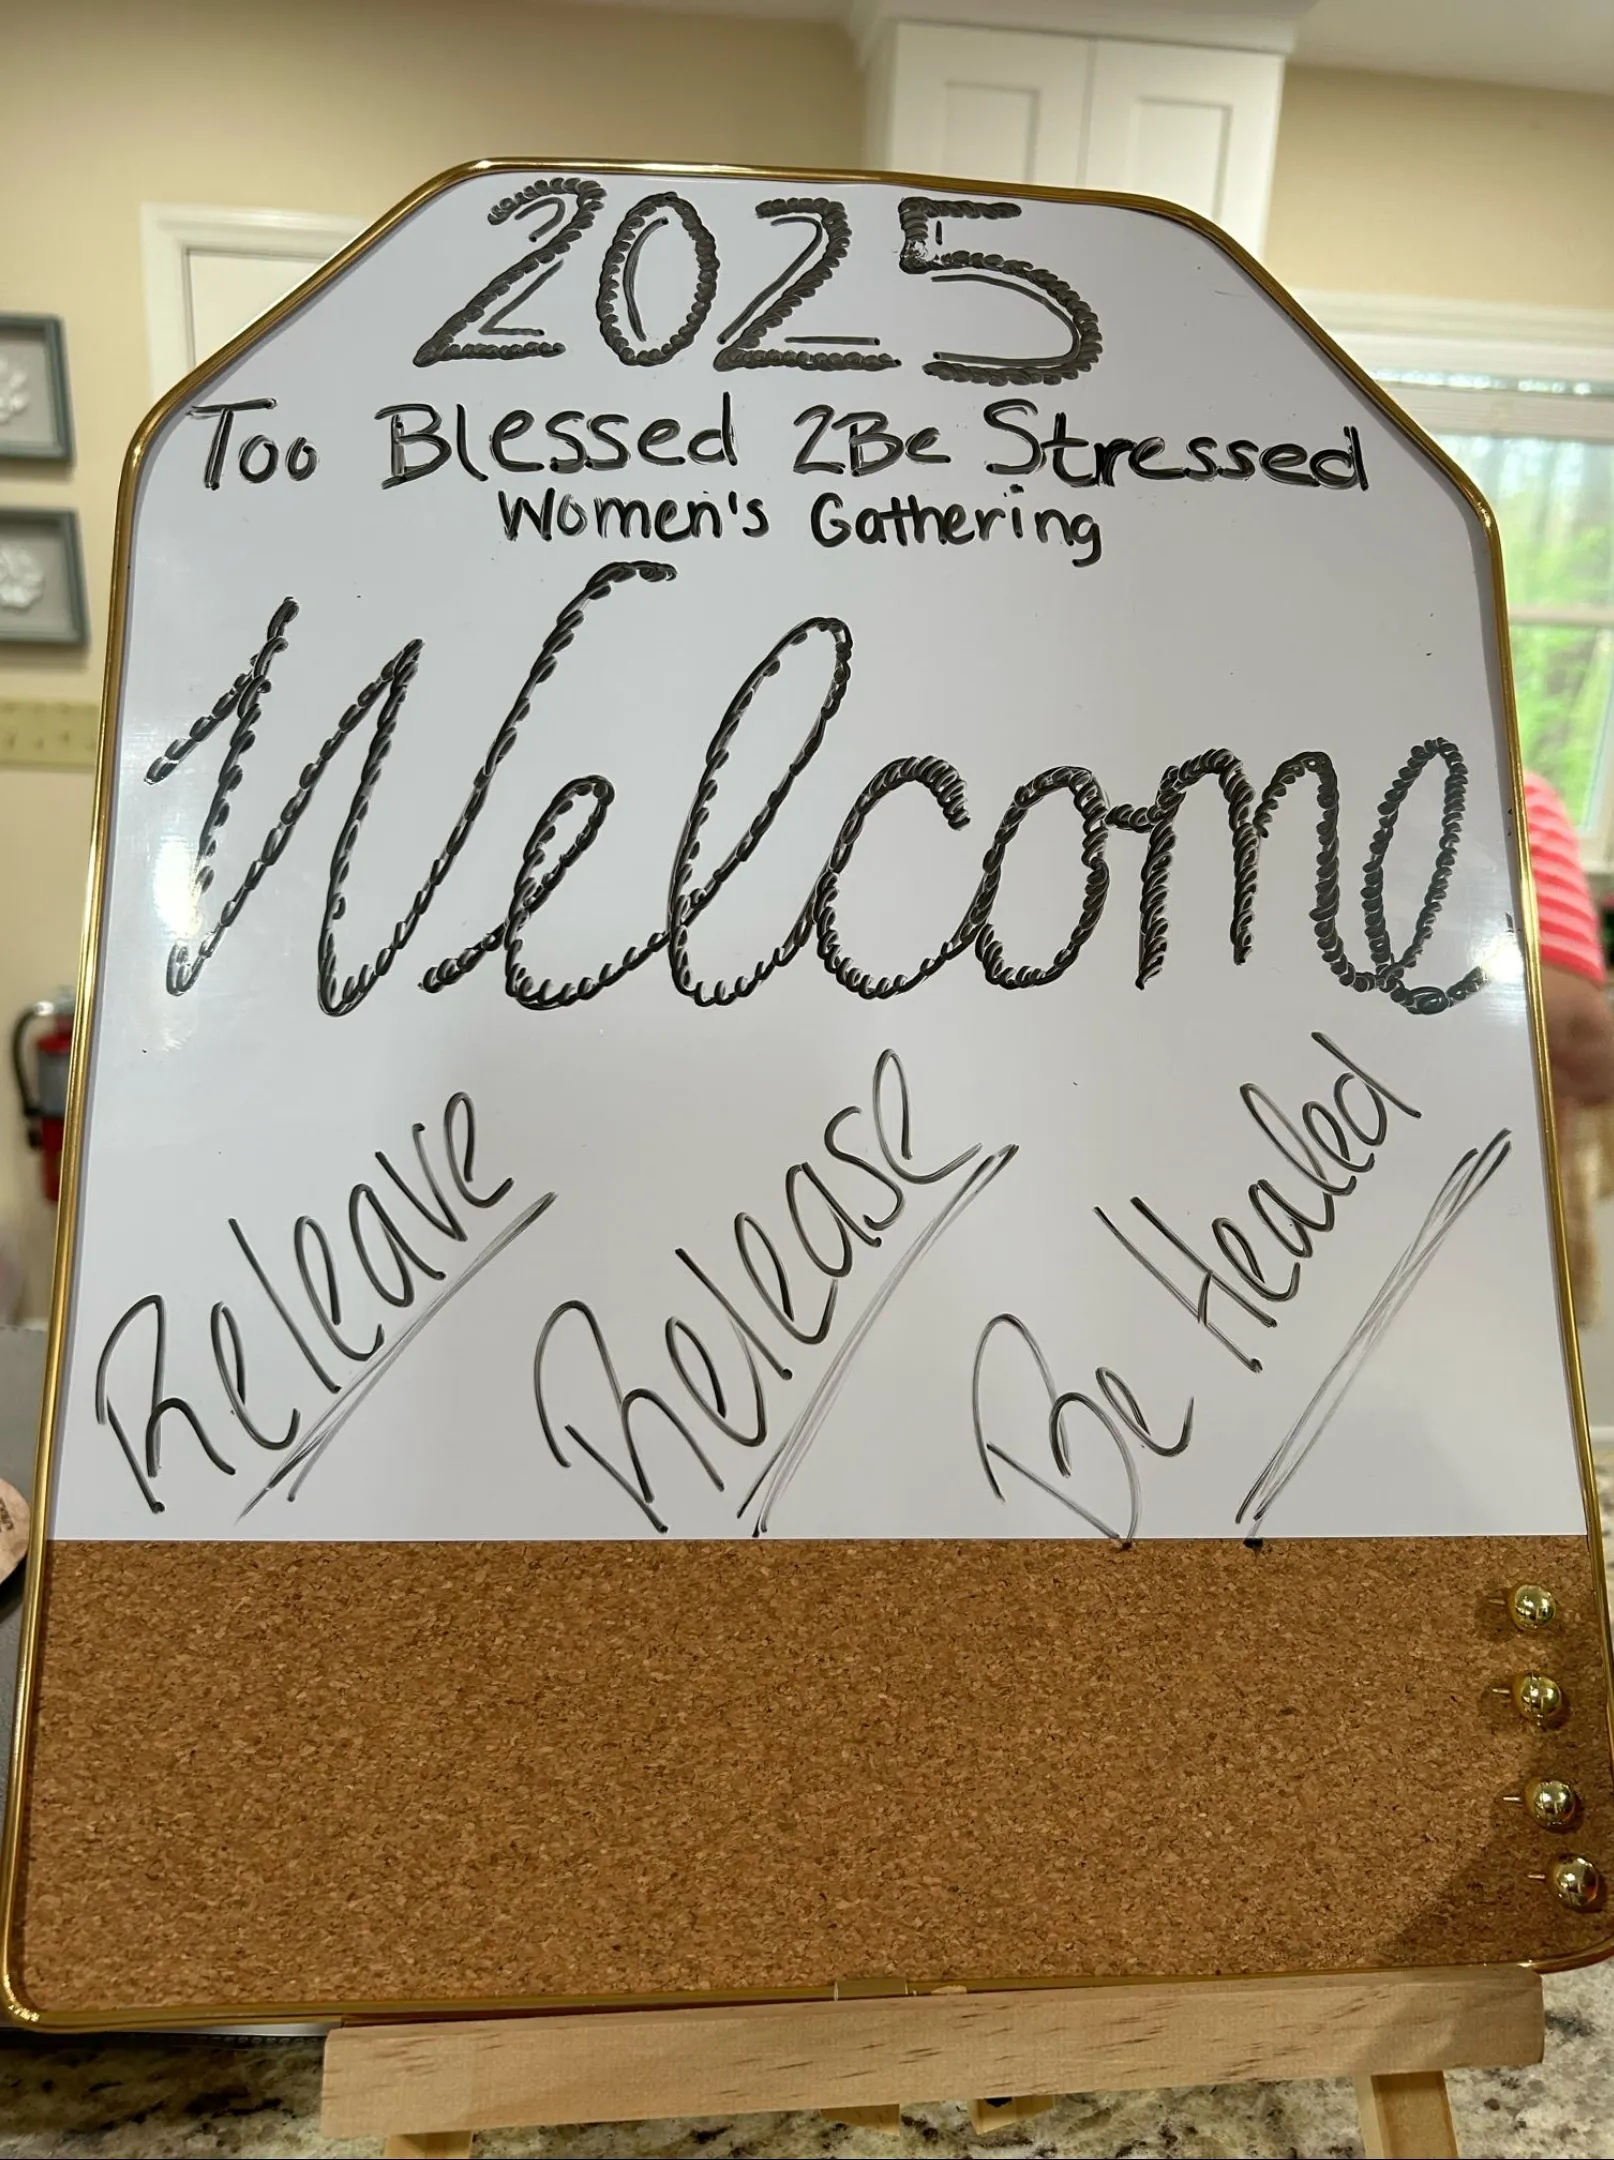 2025
Too Blessed 2Be Stressed
Women's Gathering
Welcome
Releave
Release
Be Healed